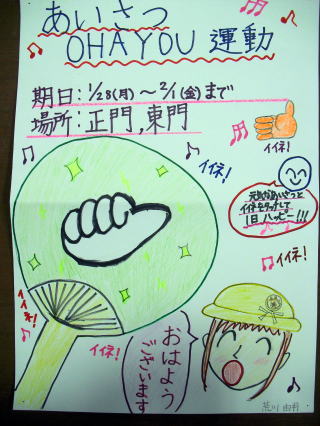 あいさつ
OHAYOU 運動
期日:1/28(月)~2/1(金)まで
場所:正門,東門
イイネ!
イイネ!
元気なあいさつと
イイネをタッチして
1日ハッピー!!!
イイネ!
イイネ!
イイネ!
おはよう
ございます